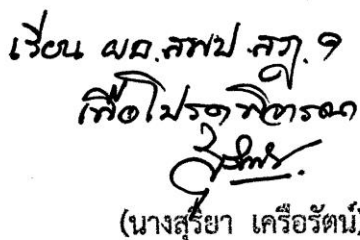 เรียน ผอ.สพป.สฎ.๑
เพื่อโปรดพิจารณา
(นางสุริยา เครือรัตน์)